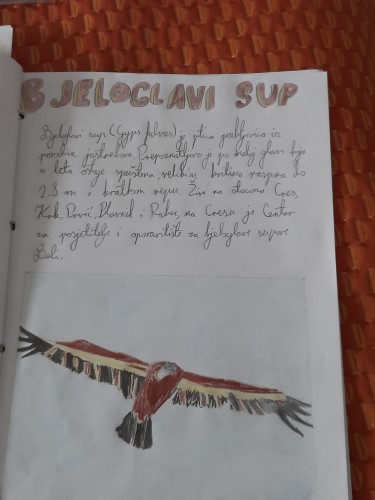 BJELOGLAVI SUP
Bjeloglavi sup (Gyps fulvus) je ptica grabljivica iz
porodice jastrebova. Prepoznatljiv je po bijeloj glavi koja
u letu ostaje spuštena, velikim krilima raspona do
2,8 m i kratkom repu. Živi na otocima Cres,
Krk, Prvić, Plavnik i Rab, na Cresu je Centar
za posjetitelje i oporavilište za bjeloglave supove
Beli.